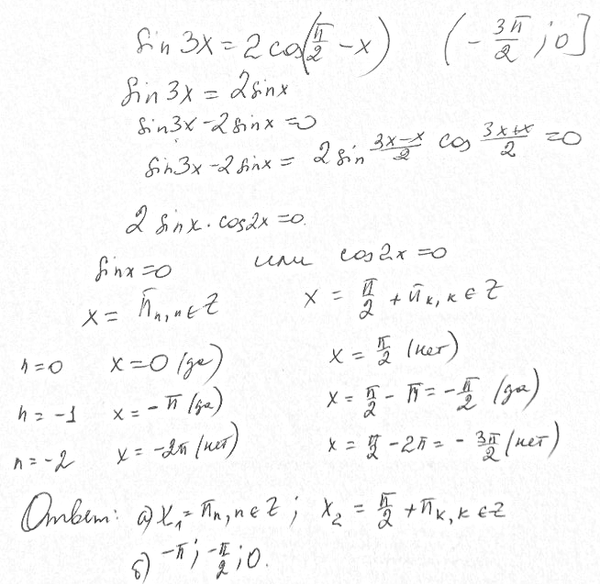 sin 3x = 2 cos(π/2 - x) (-3π/2 ; 0]
sin 3x = 2 sin x
sin 3x - 2 sin x = 0
sin 3x - 2 sin x = 2 sin (3x-x)/2 cos (3x+x)/2 = 0
2 sin x · cos 2x = 0.
sin x = 0 или cos 2x = 0
x = πn, n ∈ Z x = π/2 + πk, k ∈ Z
n = 0 x = 0 (да) x = π/2 (нет)
n = -1 x = -π (да) x = π/2 - π = -π/2 (да)
n = -2 x = -2π (нет) x = π/2 - 2π = -3π/2 (нет)
Ответ: а) x₁ = πn, n ∈ Z ; x₂ = π/2 + πk, k ∈ Z
б) -π ; -π/2 ; 0.